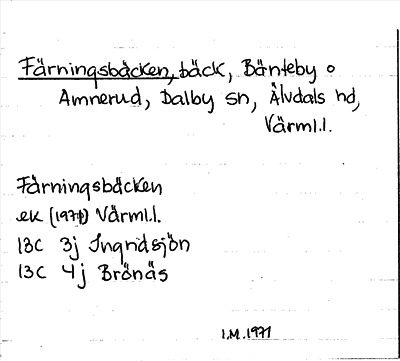 Färningsbäcken, bäck, Bänteby o
Amnerud, Dalby sn, Älvdals hd,
Värml.l.
Färningsbäcken
ek (1971) Värml.l.
13C 3j Ingridsjön
13C 4j Brönäs
I.M. 1971